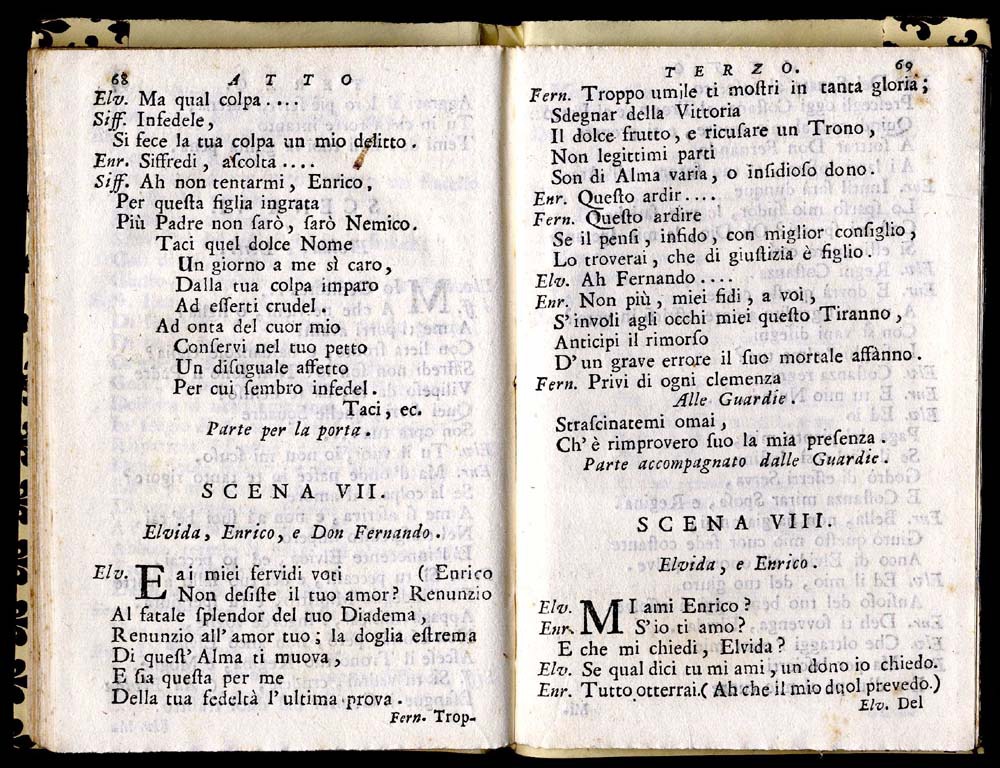 68 ATTO
Elv. Ma qual colpa....
Siff. Infedele,
Si fece la tua colpa un mio delitto.
Enr. Siffredi, aſcolta....
Siff. Ah non tentarmi, Enrico,
Per queſta figlia ingrata
Più Padre non farò, farò Nemico.
Taci quel dolce Nome
Un giorno a me sì caro,
Dalla tua colpa imparo
Ad eſſerti crudel.
Ad onta del cuor mio
Conſervi nel tuo petto
Un diſuguale affetto
Per cui ſembro infedel.
Taci, ec.
Parte per la porta.
SCENA VII.
Elvida, Enrico, e Don Fernando.
Elv. E a i miei fervidi voti (Enrico
Non deſiſte il tuo amor? Renunzio
Al fatale ſplendor del tuo Diadema,
Renunzio all' amor tuo; la doglia eſtrema
Di queſt' Alma ti muova,
E ſia queſta per me
Della tua fedeltà l'ultima prova.
Fern. Trop-
TERZO. 69
Fern. Troppo umile ti moſtri in tanta gloria;
Sdegnar della Vittoria
Il dolce frutto, e ricuſare un Trono,
Non legittimi parti
Son di Alma varia, o inſidioſo dono.
Enr. Queſto ardir....
Fern. Queſto ardire
Se il penſi, infido, con miglior conſiglio,
Lo troverai, che di giuſtizia è figlio.
Elv. Ah Fernando....
Enr. Non più, miei fidi, a voi,
S'involi agli occhi miei queſto Tiranno,
Anticipi il rimorſo
D'un grave errore il ſuo mortale affanno.
Fern. Privi di ogni clemenza
Alle Guardie.
Straſcinatemi omai,
Ch' è rimprovero ſuo la mia preſenza.
Parte accompagnato dalle Guardie.
SCENA VIII.
Elvida, e Enrico.
Elv. MI ami Enrico?
Enr. S'io ti amo?
E che mi chiedi, Elvida?
Elv. Se qual dici tu mi ami, un dono io chiedo.
Enr. Tutto otterrai. (Ah che il mio duol prevedo.)
Elv. Del